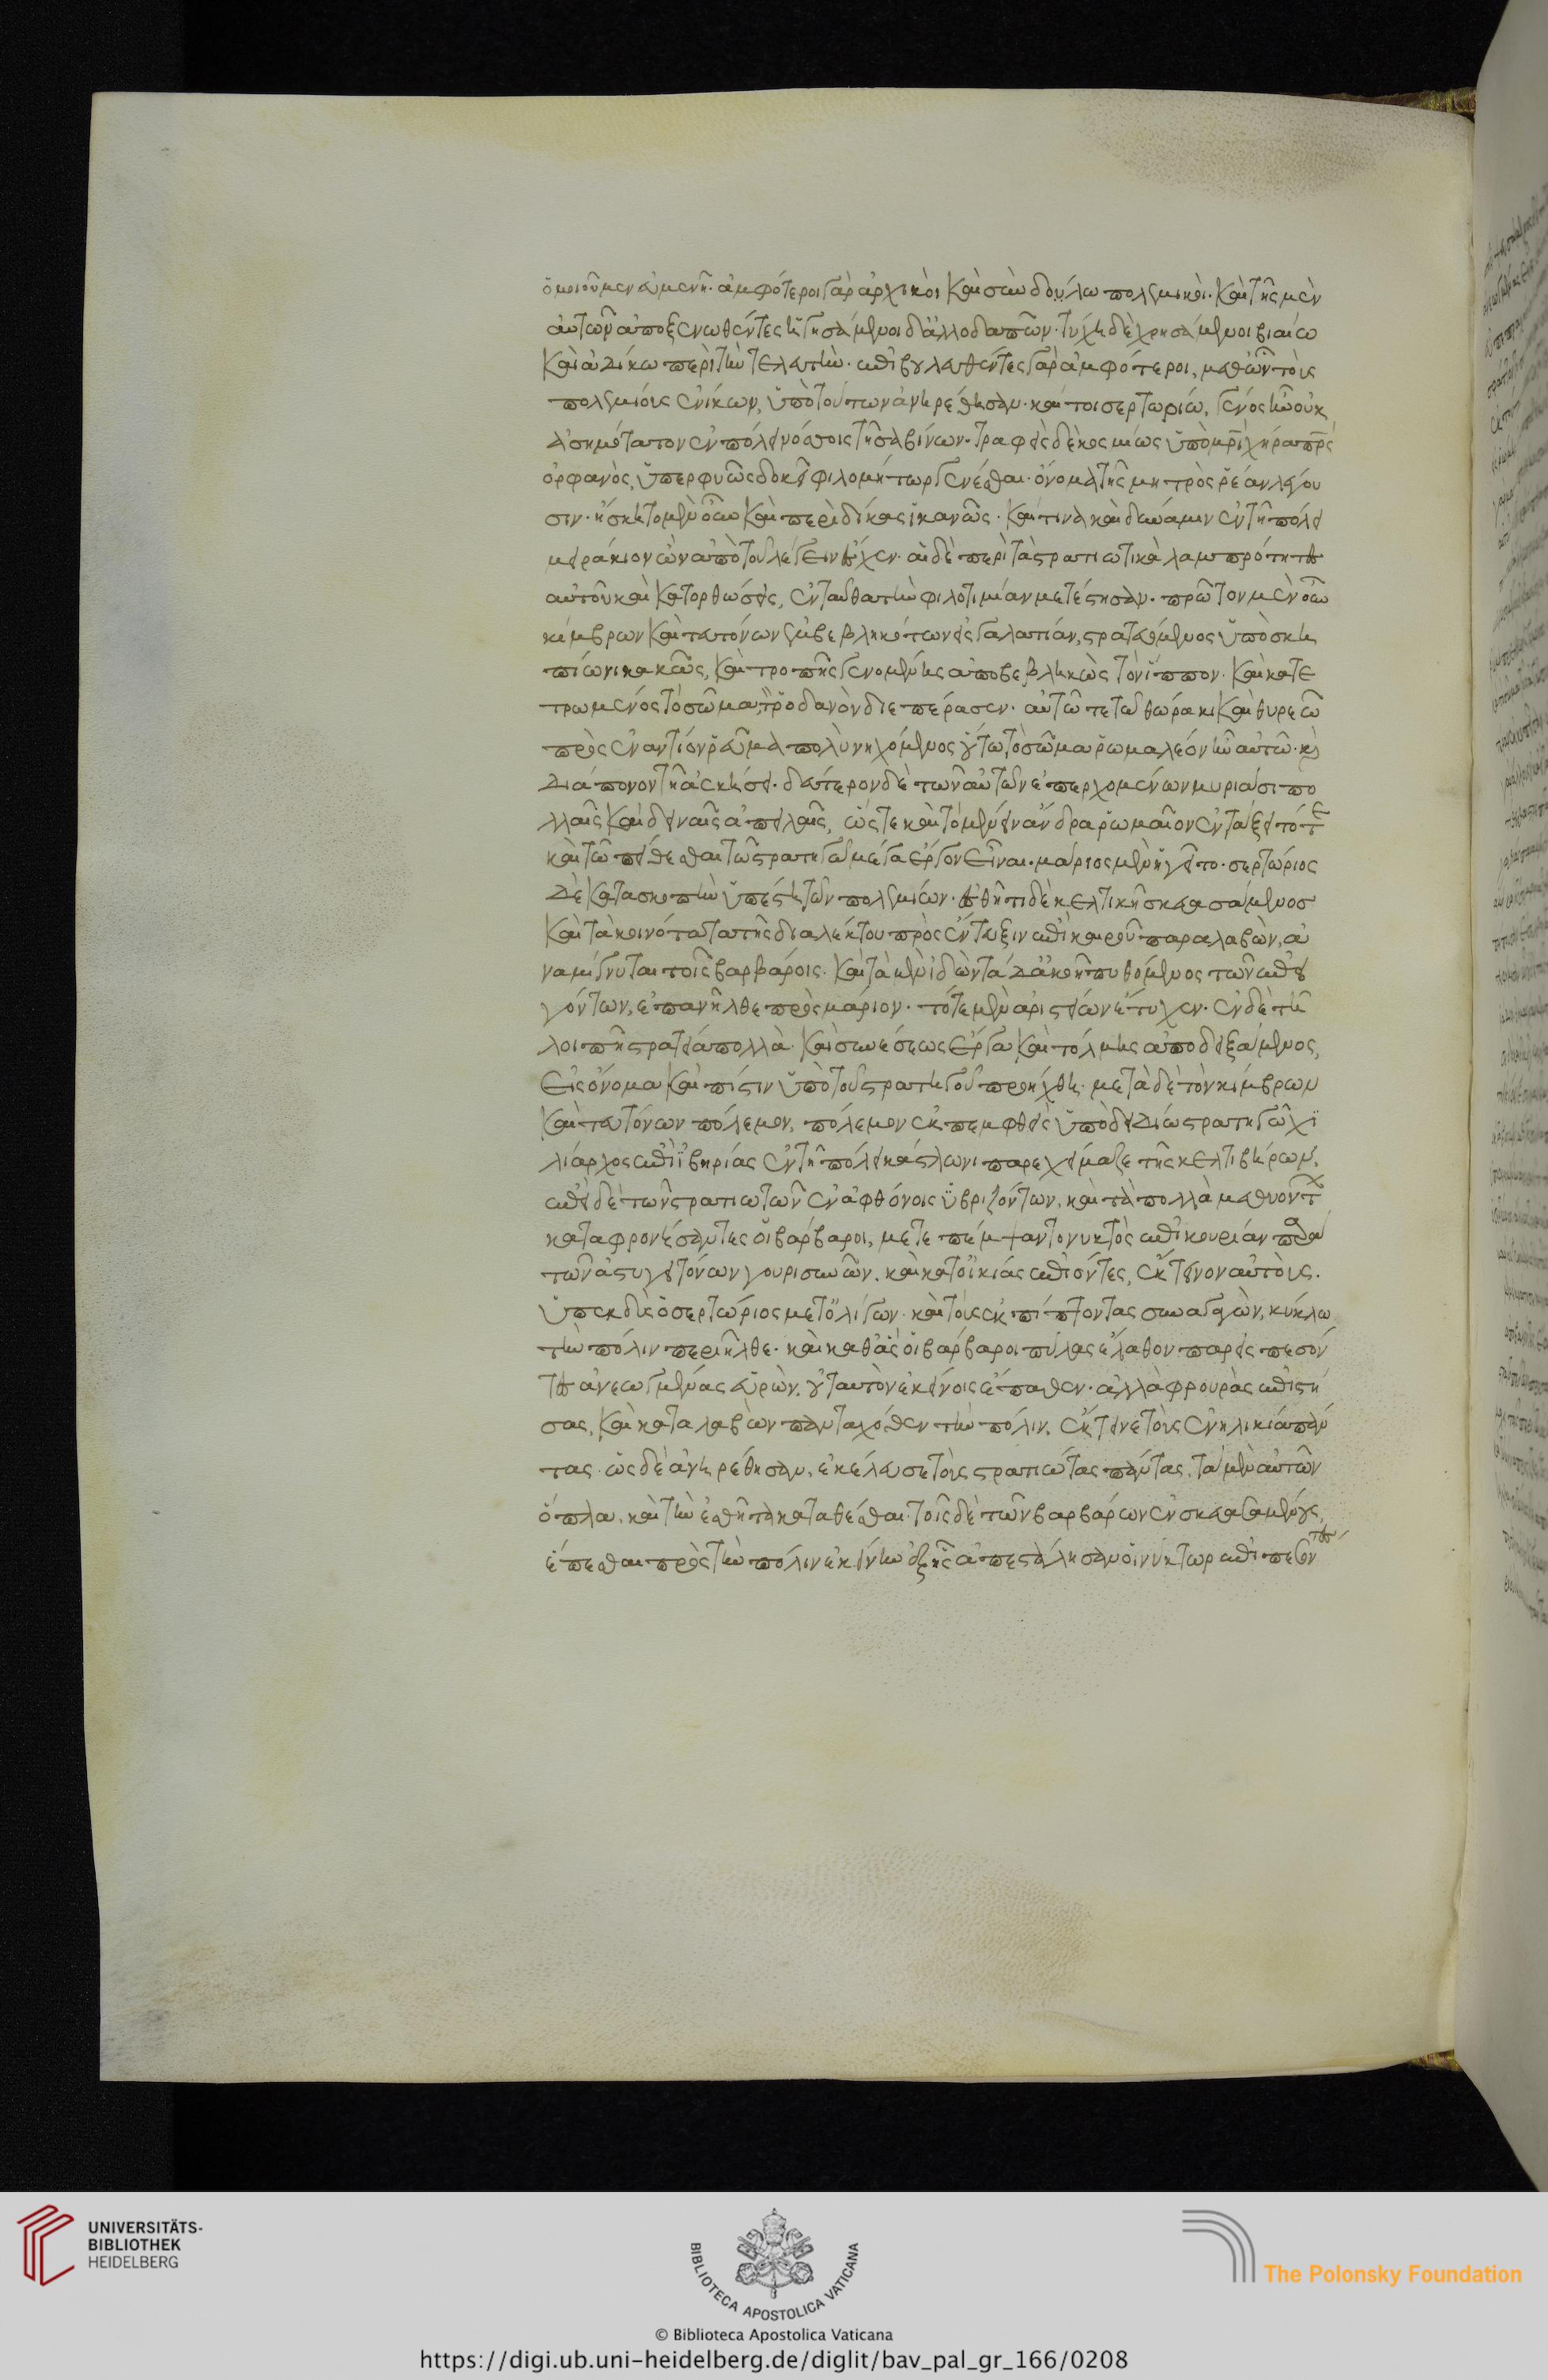 ὁμοιοῦμεν εὐμενῆ. ἀμφότεροι γὰρ ἀρχικοὶ καὶ σὺν δουλω πολεμικοί. καὶ τῆς μὲν
αὐτῶν ἀποξενωθέντες ἡγησάμενοι δἀλλοδαπῶν. τύχη δὲ χρησάμενοι βιαίω
καὶ ἀδίκω περὶ τὴν τελευτήν. ἐπιβουλευθέντες γὰρ ἀμφότεροι, μεθ' ὧν τοὺς
πολεμίους ἐνίκων, ὑπὸ τούτων ἀνηρέθησαν. καί τοι σερτωρίω, γένος ἦν οὐκ
ἀσημότατον ἐν πόλει νόαις τῆς σαβίνων. τραφεὶς δὲ κοσμίως ὑπὸ μρὶ χήρα πρς
ὀρφανὸς, ὑπερφυῶς δοκεῖ φιλομήτωρ γενέσθαι. ὄνομα τῆς μητρὸς ῥέαν λέγου
σιν. ἤσκητο μὲν οὖν καὶ περὶ δίκας ἱκανῶς. καί τινα καὶ δύναμιν ἐν τῆ πόλει
μειράκιον ὢν ἀπὸ τοῦ λέγειν εἶχεν. αἱ δὲ περὶ τὰ στρατιωτικὰ λαμπρότητες
αὐτοῦ καὶ κατορθώσεις, ἐνταῦθα τὴν φιλοτιμίαν μετέστησαν. πρῶτον μὲν οὖν
κίμβρων καὶ τευτόνων ἐμβεβληκότων εἰς γαλατίαν, στρατευόμενος ὑπὸ σκη
πίωνι κακῶς, καὶ τροπῆς γενομένης ἀποβεβληκὼς τὸν ἵππον. καὶ κατε
τρωμένος τὸ σῶμα, τὸν ῥοδανὸν διεπέρασεν. αὐτῶ τε τῶ θώρακι καὶ θυρεῶ
πρὸς ἐναντίον ῥεῦμα πολὺ νηχόμενος οὕτω τὸ σῶμα ῥωμαλέον ἦν αὐτῶ. καὶ
διάπονον τῆ ἀσκήσει. δεύτερον δὲ τῶν αὐτῶν ἐπερχομένων μυριάσι πο
λλαῖς καὶ δειναῖς ἀπειλαῖς, ὥστε καὶ τὸ μένειν ἄνδρα ῥωμαῖον ἐν τάξει τότε
καὶ τῶ πείθεσθαι τῶ στρατηγῶ μέγα ἔργον εἶναι. μάριος μὲν ἡγεῖτο. σερτώριος
δὲ κατασκοπὴν ὑπέστη τῶν πολεμίων. ἐσθῆτι δὲ κελτικῆ σκευασάμενος
καὶ τὰ κοινότατα τῆς διαλέκτου πρὸς ἔντευξιν ἐπὶ καιροῦ παραλαβὼν, ἀ
ναμίγνυται τοῖς βαρβάροις. καὶ τὰ μὲν ἰδὼν τὰ δ' ἀκοῆ πυθόμενος τῶν ἐπει
γόντων, ἐπανῆλθε πρὸς μάριον. τότε μὲν ἀριστείων ἔτυχεν. ἐν δὲ τῆ
λοιπῆ στρατεία πολλὰ. καὶ συνέσεως ἔργα καὶ τόλμης ἀποδειξάμενος,
εἰς ὄνομα καὶ πίστιν ὑπὸ τοῦ στρατηγοῦ προήχθη. μετὰ δὲ τὸν κίμβρων
καὶ τευτόνων πόλεμον, πόλεμον ἐκπεμφθεὶς ὑπὸ δειδίω στρατηγῶ χι
λίαρχος ἐπὶ ἰβηρίας ἐν τῆ πόλει κάστλωνι παρεχείμαζε τῆς κελτιβήρων.
ἐπεὶ δὲ τῶν στρατιωτῶν ἐν ἀφθόνοις ὑβριζόντων, καὶ τὰ πολλὰ μεθυόντων
καταφρονήσαντες οἱ βάρβαροι, μετεπέμψαντο νυκτὸς ἐπικουρίαν παρὰ
τῶν ἀστυγειτόνων γουρισυνῶν. καὶ κατ' οἰκίας ἐπιόντες, ἔκτεινον αὐτούς.
ὑπεκδὺς ὁ σερτώριος μετ' ὀλίγων. καὶ τοὺς ἐκπίπτοντας συναγαγὼν, κύκλω
τὴν πόλιν περιῆλθε. καὶ καθ' ἃς οἱ βάρβαροι πύλας ἔλαθον παρεισπεσόν
τες ἀνεωγμένας εὑρὼν. οὐ ταυτὸν ἐκείνοις ἔπαθεν. ἀλλὰ φρουρὰς ἐπιστή
σας, καὶ καταλαβὼν πανταχόθεν τὴν πόλιν. ἔκτεινε τοὺς ἐν ἡλικία πάν
τας. ὡς δὲ ἀνηρέθησαν, ἐκέλευσε τοὺς στρατιώτας πάντας, τὰ μὲν αὐτῶν
ὅπλα, καὶ τὴν ἐσθῆτα καταθέσθαι. τοῖς δὲ τῶν βαρβάρων ἐνσκευασαμένους,
ἕπεσθαι πρὸς τὴν πόλιν ἐκείνην ἐξ ἧς ἀπεστάλησαν οἱ νύκτωρ ἐπιπεσόντες
UNIVERSITÄTS-
BIBLIOTHEK
HEIDELBERG
BIBLIOTECA APOSTOLICA VATICANA
The Polonsky Foundation
© Biblioteca Apostolica Vaticana
https://digi.ub.uni-heidelberg.de/diglit/bav_pal_gr_166/0208